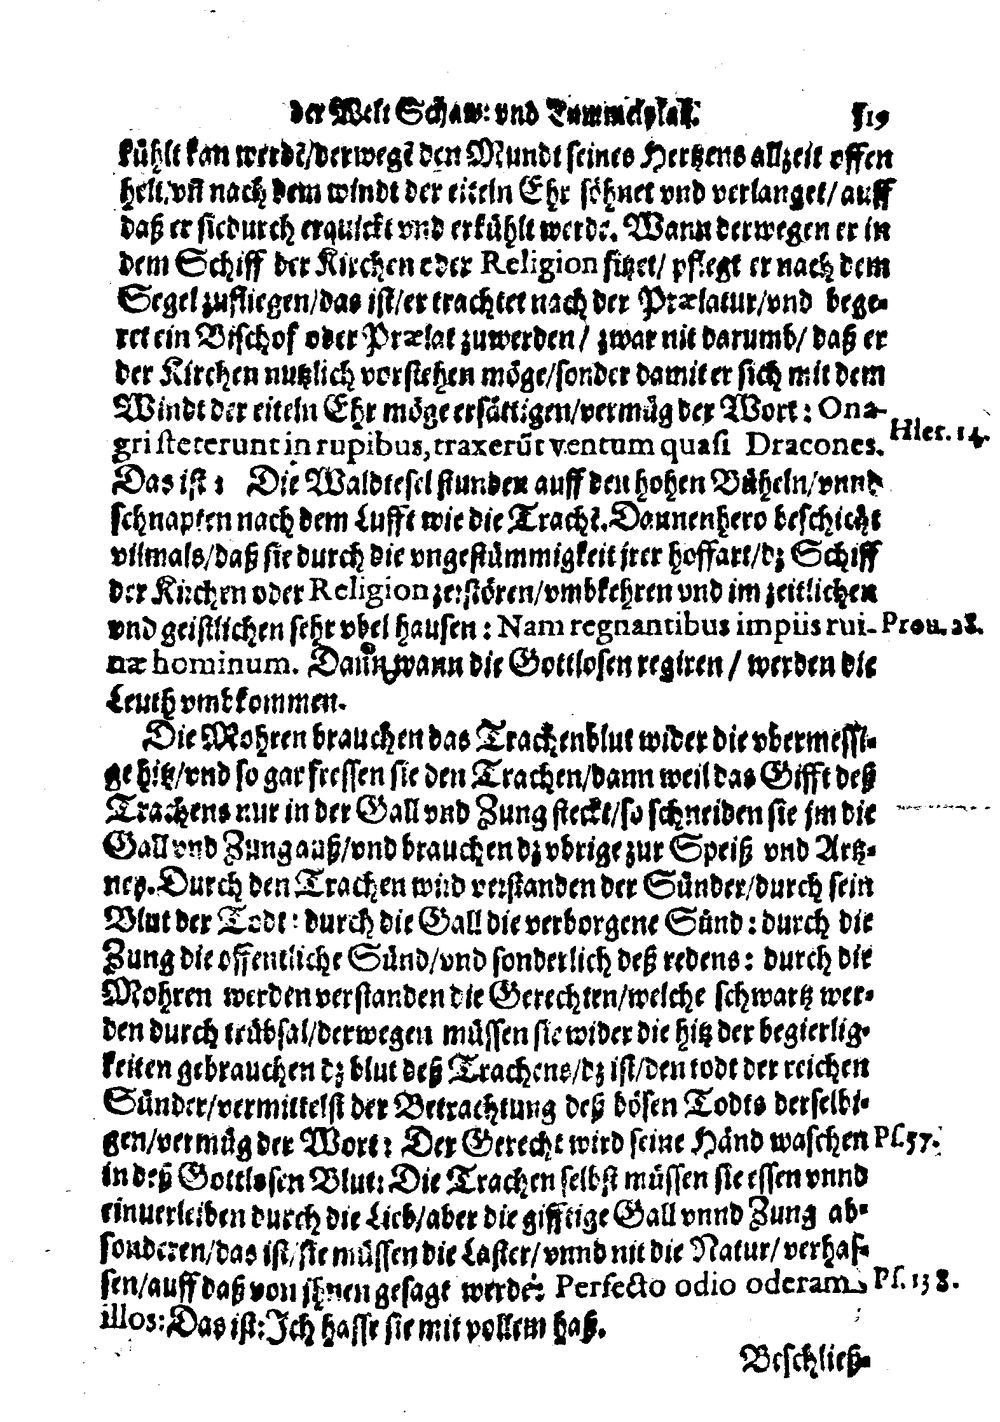 der Welt Schaw: und Tummelplatz. 519
kühlt kan werdē/derwegē den Mundt seines Hertzens allzeit offen
helt/vñ nach dem windt der eiteln Ehr söhnet vnd verlanget/auff
daß er siedurch erquickt vnd erkühlt werde. Wann derwegen er in
dem Schiff der Kirchen oder Religion sitzet/ pflegt er nach dem
Segel zufliegen/das ist/er trachtet nach der Prælatur/vnd bege-
ret ein Bischof oder Prælat zuwerden/ zwar nit darumb/ daß er
der Kirchen nutzlich vorstehen möge/sonder damit er sich mit dem
Windt der eiteln Ehr möge ersättigen/vermüg der Wort: Ona-
gri steterunt in rupibus, traxerūt ventum quasi Dracones. Hier. 14.
Das ist: Die Waldtesel stunden auff den hohen Büheln/vnnd
schnapten nach dem Lufft wie die Trachē. Dannenhero beschicht
vilmals/daß sie durch die vngestümmigkeit jrer hoffart/dz Schiff
der Kirchen oder Religion zerstören/vmbkehren vnd im zeitlichen
vnd geistlichen sehr vbel hausen: Nam regnantibus impiis rui- Prou. 28.
næ hominum. Dann wann die Gottlosen regiren/ werden die
Leuth vmbkommen.
Die Mohren brauchen das Trackenblut wider die vbermessi-
ge hitz/vnd so gar fressen sie den Trachen/dann weil das Gifft deß
Trachens nur in der Gall vnd Zung steckt/so schneiden sie jm die
Gall vnd Zung auß/vnd brauchen dz vbrige zur Speiß vnd Artz-
ney. Durch den Trachen wird verstanden der Sünder/durch sein
Blut der Todt: durch die Gall die verborgene Sünd: durch die
Zung die offentliche Sünd/vnd sonderlich deß redens: durch die
Mohren werden verstanden die Gerechten/welche schwartz wer-
den durch trübsal/derwegen müssen sie wider die hitz der begierlig-
keiten gebrauchen dz blut deß Trachens/dz ist/den todt der reichen
Sünder/vermittelst der Betrachtung deß bösen Todts derselbi-
gen/vermüg der Wort: Der Gerecht wird seine Händ waschen Ps. 57.
in deß Gottlosen Blut: Die Trachen selbst müssen sie essen vnnd
einuerleiben durch die Lieb/aber die gifftige Gall vnnd Zung ab-
sonderen/das ist/sie müssen die Laster/vnnd nit die Natur/verhas-
sen/auff daß von jhnen gesagt werde: Perfecto odio oderam Ps. 138.
illos: Das ist: Ich hasse sie mit vollem haß.
Beschließ-